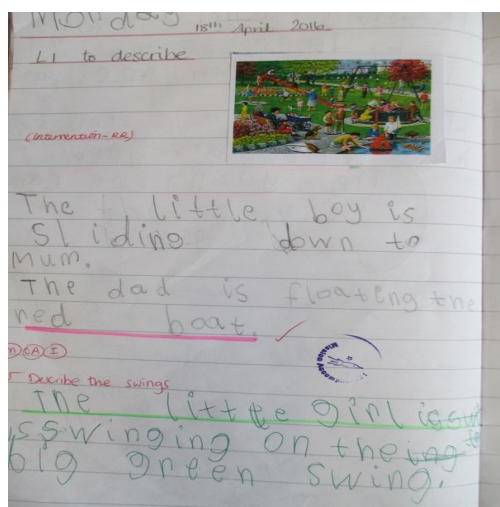 Monday 18th April 2016
LI to describe
(intervention-RR)
The little boy is
Sliding down to
Mum.
The dad is floateng the
red boat.
Describe the swings
The little girl is
swinging on the
big green swing.